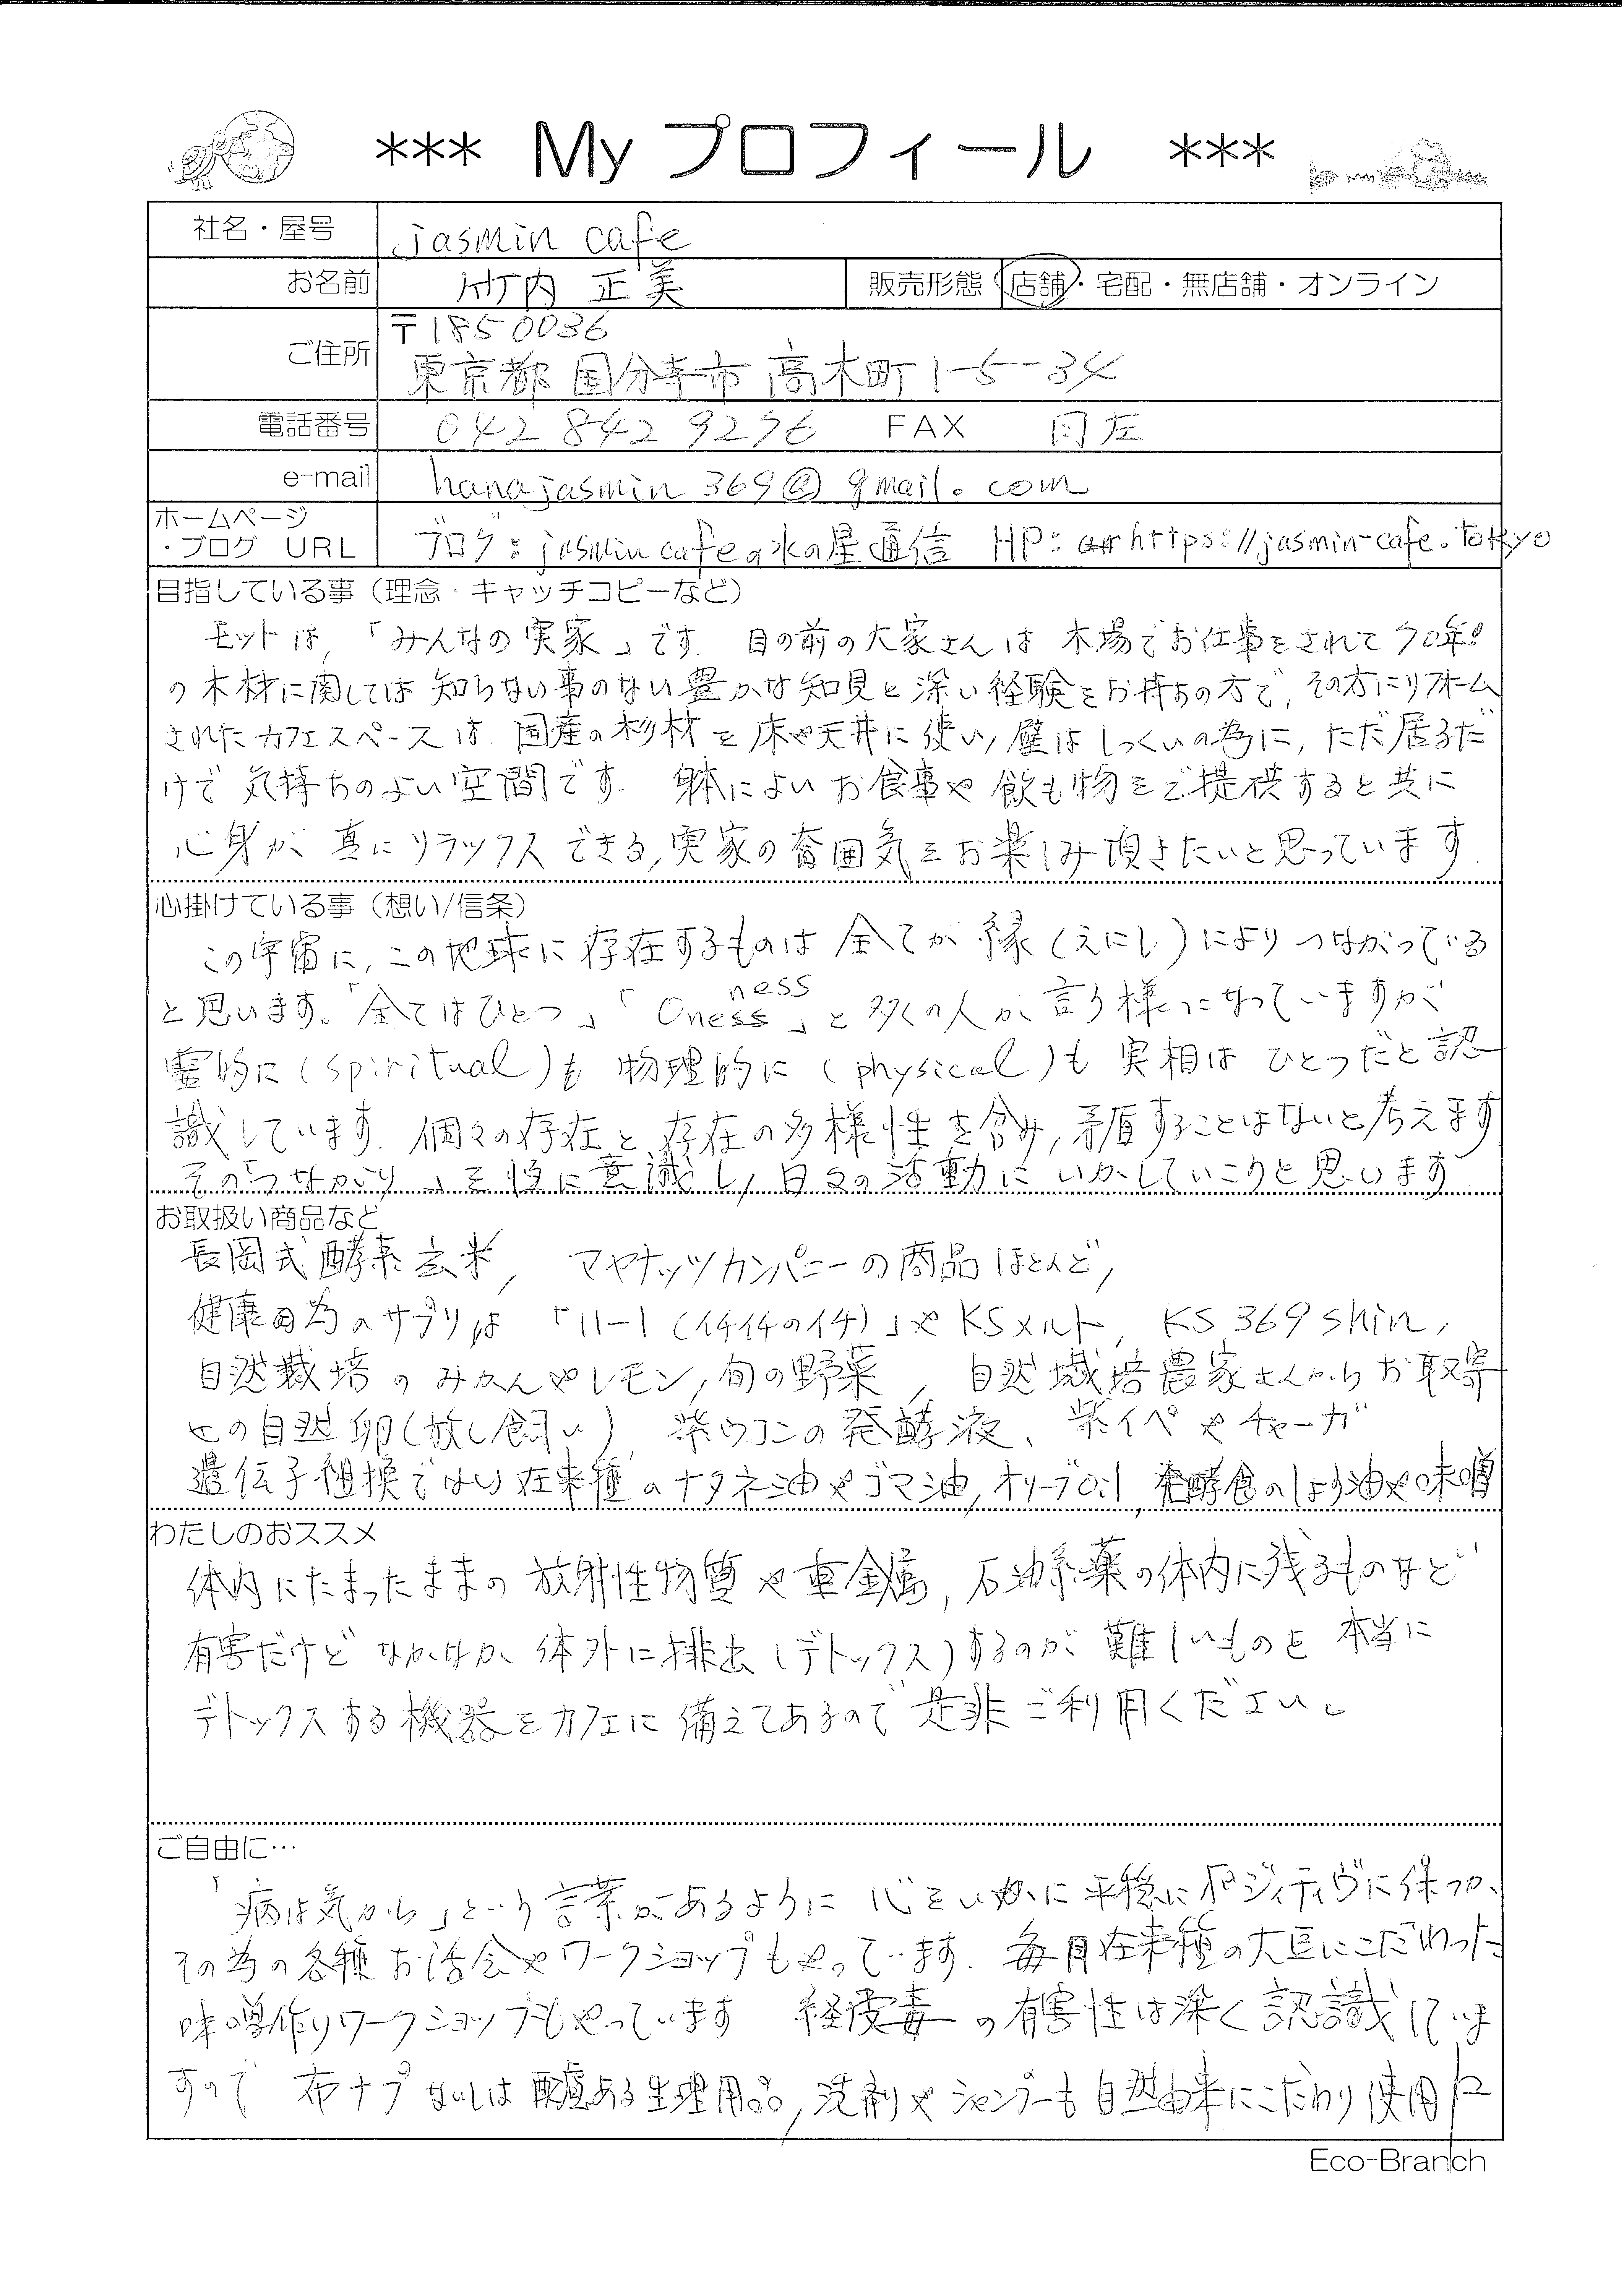 *** My プロフィール ***
社名・屋号 jasmin cafe
お名前 竹内 正美 販売形態 店舗・宅配・無店舗・オンライン
ご住所 〒1850036
東京都 国分寺市 高木町1-5-34
電話番号 042 842 9276 FAX 同左
e-mail hanajasmin369@gmail.com
ホームページ
・ブログ URL ブログ:jasmin cafeの水の星通信 HP: https://jasmin-cafe.Tokyo
目指している事(理念・キャッチコピーなど)
モットは,「みんなの実家」です. 目の前の大家さんは 木場でお仕事をされて70年!
の木材に関しては 知らない事のない豊かな知見と深い経験をお持ちの方で, その方にリフォーム
されたカフェスペースは 国産の杉材を床や天井に使い, 壁はしっくいの為に, ただ居るだ
けで 気持ちのよい空間です. 躰によい お食事や飲も物をご提供すると共に
心身が 真にリラックスできる, 実家の雰囲気をお楽しみ頂きたいと思っています.
心掛けている事(想い/信条)
この宇宙に, この地球に存在するものは 全てが 縁(えにし)により つながっている
と思います。「全てはひとつ」「Oneness」と多くの人が 言う様になっていますが
ness
霊的に(spiritual)も 物理的に(physical)も 実相は ひとつだと認
識しています. 個々の存在と 存在の多様性を含み, 矛盾することはないと考えます
その「つながり」を常に意識し, 日々の活動に いかしていこうと思います
お取扱い商品など
長岡式酵素玄米, マヤナッツカンパニーの商品ほとんど,
健康の為のサプリは 「11-1(イチイチのイチ)」や KSメルト, KS 369 shin,
自然栽培 のみかんやレモン, 旬の野菜, 自然栽培農家さんからお取寄
せの自然卵(放し飼い) 紫ウコンの発酵液、紫イペやチャーガ
遺伝子組換ではい在来種のナタネ油やゴマ油, オリーブOil, 発酵食のしょう油や味噌
わたしのおススメ
体内にたまったままの 放射性物質や重金属, 石油系薬の体内に残るものなど
有害だけど なかなか 体外に排出(デトックス)するのが 難しいものを 本当に
デトックスする機器をカフェに 備えてあるので 是非ご利用ください。
ご自由に…
「病は気から」という言葉があるように 心をいかに平穏にポジティヴに保つか、
その為の各種お話会やワークショップもやっています. 毎月在来種の大豆にこだわった
味噌作りワークショップもやっています 経皮毒の有害性は深く認識していま
すので 布ナプ ないしは 配慮ある生理用品, 洗剤やシャンプーも自然由来にこだわり使用
Eco-Branch